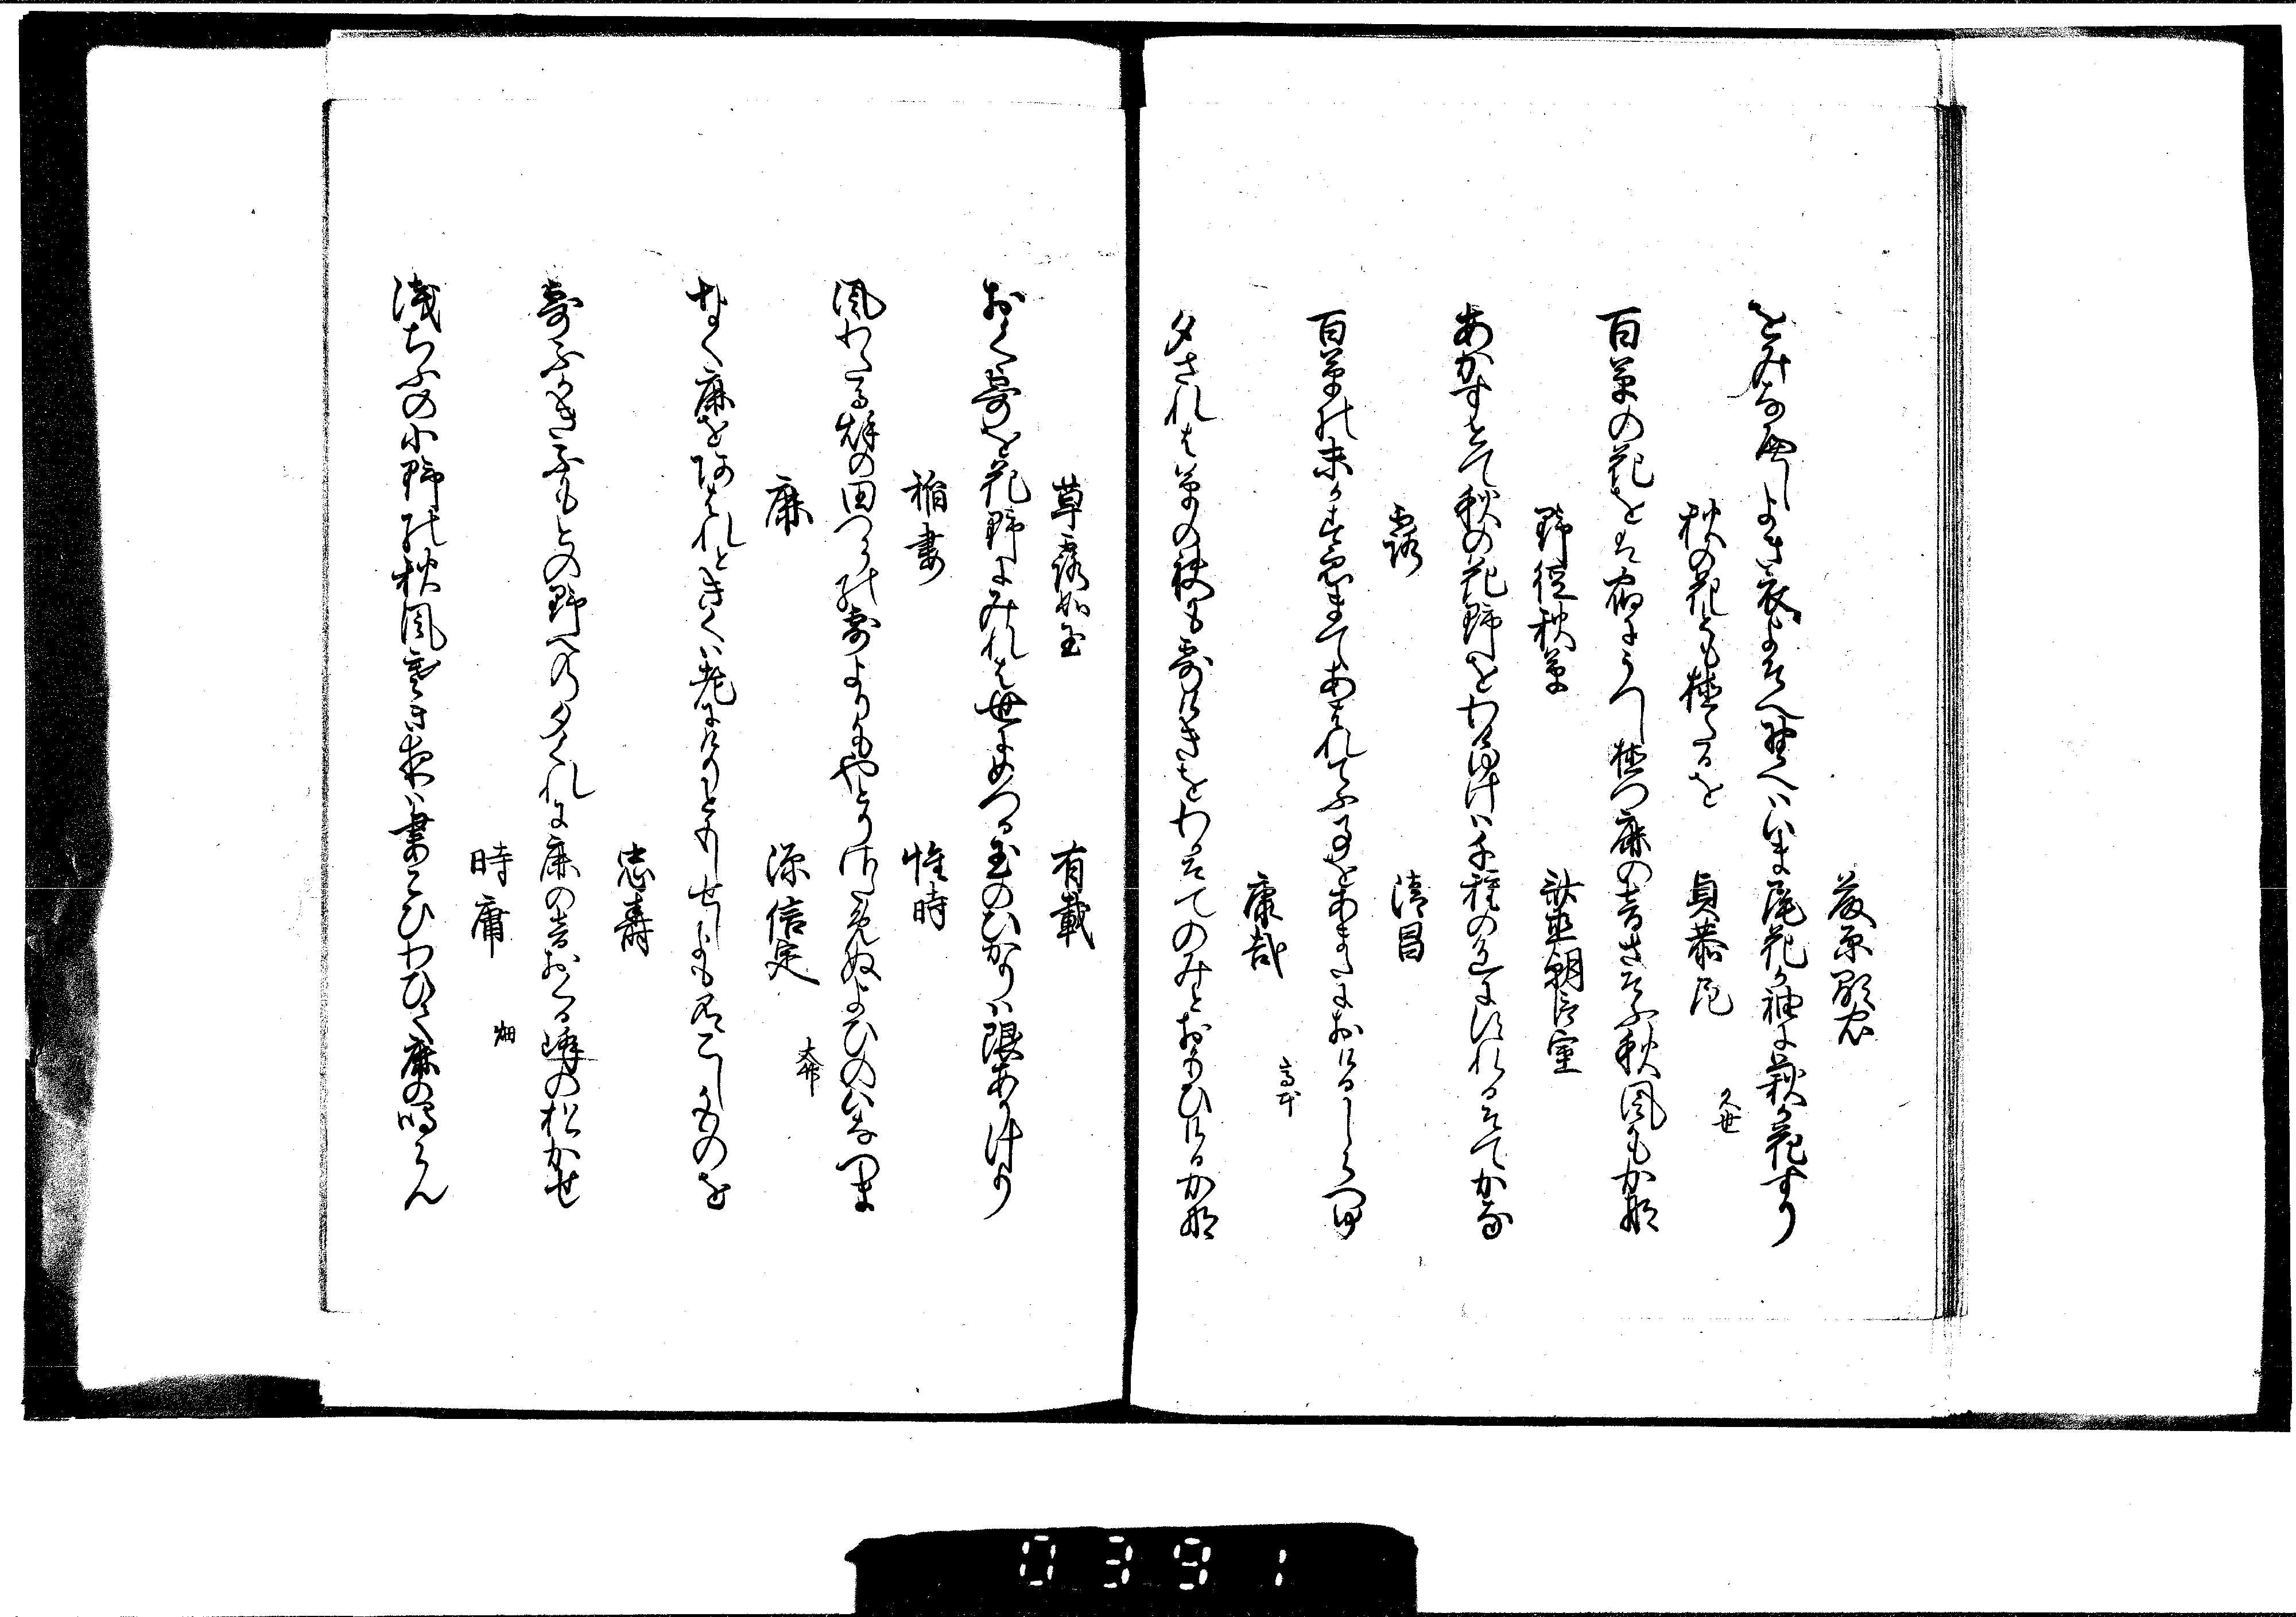 藤原顕忠
をみなへしよき衣よそへ野へはいま尾花か袖に萩か花すり
秋の花とも植たるを
貞恭尼
久世
百草の花をは宿にうつし植つ鹿の音さそふ秋風もかな
野径秋草
朝臣室
あかすとて秋の花野をわけゆけは千種の色にぬれるそてかな
露
清昌
百草の末かすゑまてあはれてふことをあまたにおけるしらつゆ
康哉
高木
夕されは草の袂も露けきをわかそてのみとおもひけるかな
草露如玉
有載
おく露を花野にみれは世にめつる玉のひかりは限ありけり
稲妻
惟時
風わたる秋の田つらの露よりもやとりさためぬよひのいなつま
鹿
源信定
大邨
なく鹿をあはれときくは老にけりともしせしよも有こしものを
忠寿
露ふかきふもとの野への夕くれに鹿の音おくる峰の松かせ
時庸
畑
浅ちふの小野の秋風寒き夜は妻こひわひて鹿の鳴らん
0391